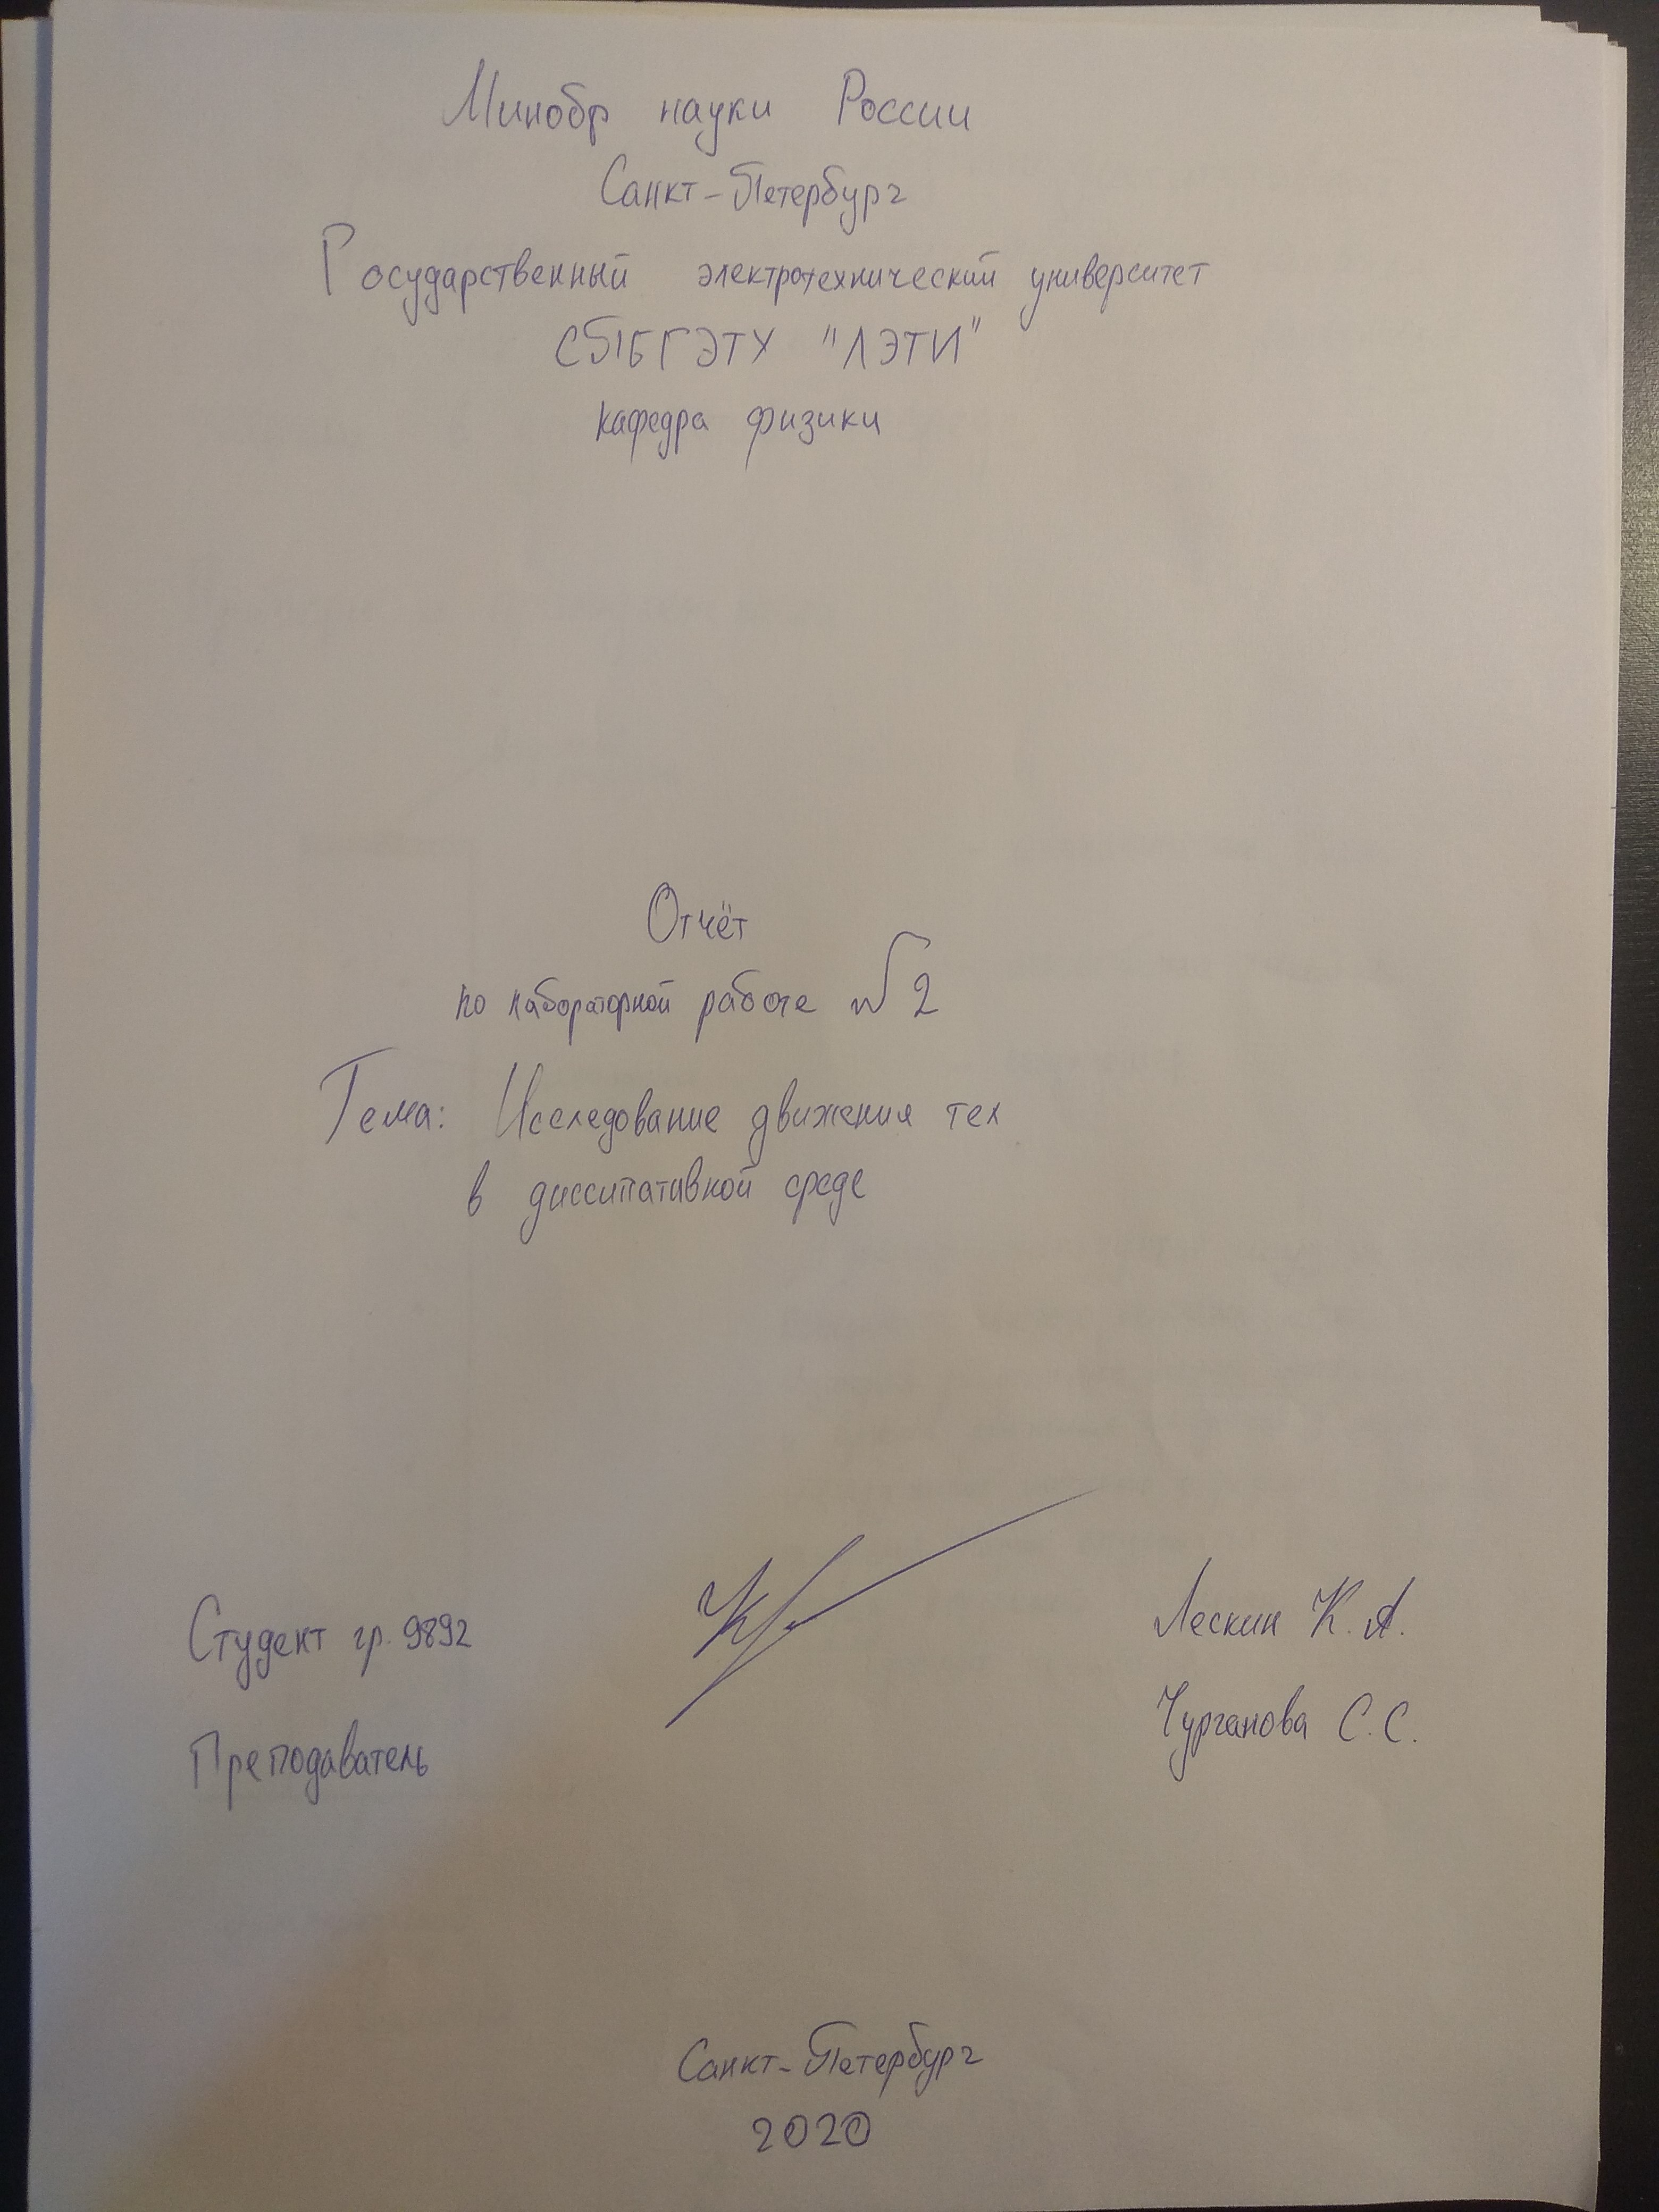 Минобр науки России
Санкт-Петербург
Государственный электротехнический университет
СПБГЭТУ "ЛЭТИ"
кафедра физики
Отчёт
по лабораторной работе № 2
Тема: Исследование движения тел
в диссипативной среде
Студент гр. 9892
Лескин К. А.
Преподаватель
Чурганова С. С.
Санкт-Петербург
2020